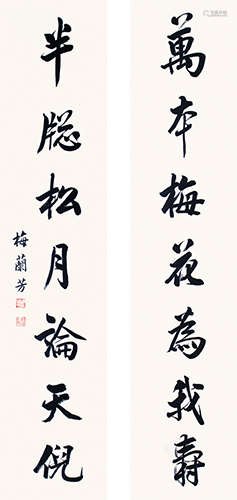 萬本梅花為我壽
半牕松月論天倪
梅蘭芳